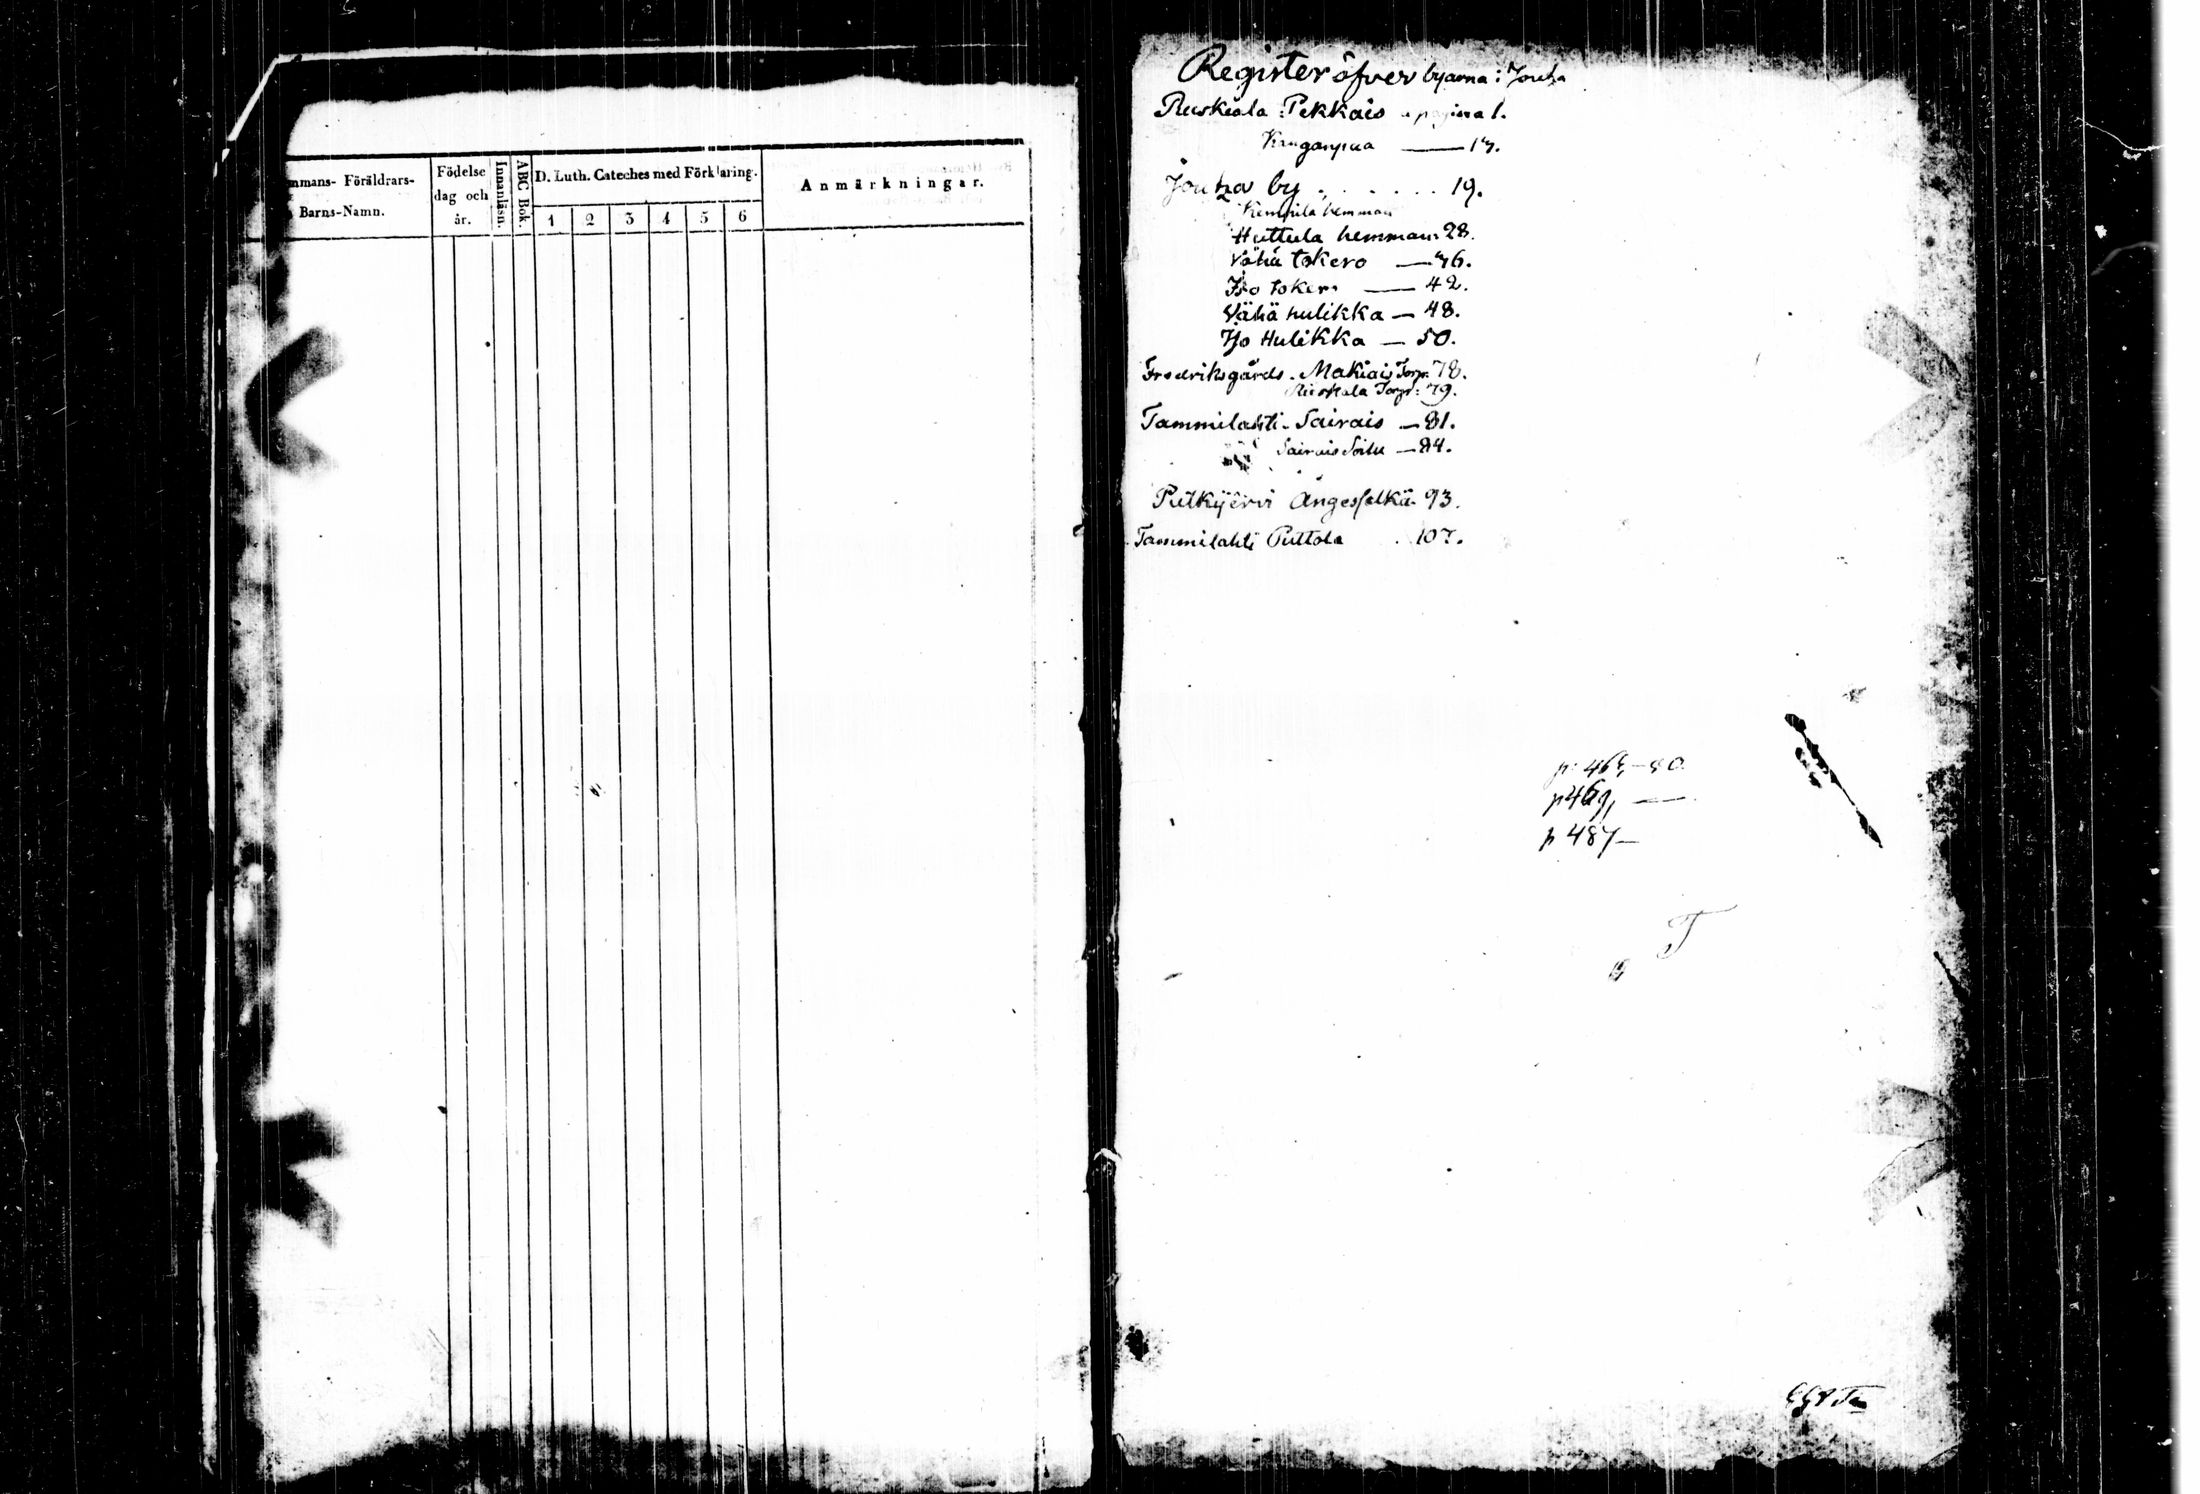 mmans- Föräldrars-
Barns-Namn.
Födelse
dag och
år.
Innanläsn.
ABC Bok.
D. Luth. Cateches med Förklaring.
1 2 3 4 5 6
Anmärkningar.
Register öfver byarna: Jouha
Ruskiala Pekkais pagina 1.
Kanganpaa — 17.
Jouha by . . . . . . 19.
Kemppilä hemman
Huttula hemman 28.
Vähä tokero — 36.
Iso tokero — 42.
Vähä hulikka — 48.
Iso Hulikka — 50.
Fredriksgårds. Makiais Torp. 78.
Torp: 79.
Tammilahti - Sairais — 81.
Sairais Soilu — 84.
Putkijärvi Ängesselkä 93.
Tammilahti Puttola . 107.
p. 80
p 469, —
p 487 —
T